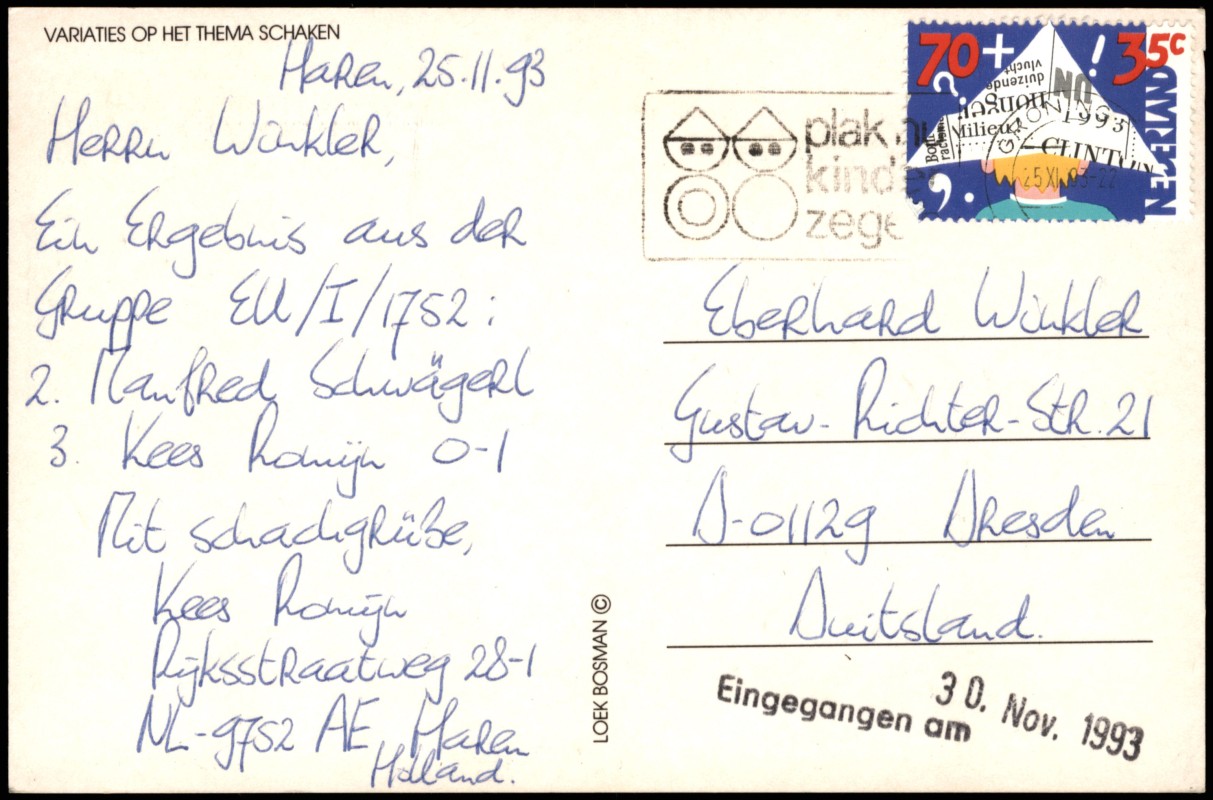 VARIATIES OP HET THEMA SCHAKEN
Haren, 25.11.93
Herrn Winkler,
Ein Ergebnis aus der
Gruppe EU/I/1752:
2. Manfred Schwägerl
3. Kees Romijn 0-1
Mit schachgrüße,
Kees Romijn
Rijksstraatweg 28-1
NL-9752 AE Haren
Holland.
LOEK BOSMAN ©
plak
kinde
zege
70+ 35c
? !
duizende
vlucht
UN
Milieu
1993
CLINTON
25 XI 93-22
Eberhard Winkler
Gustav-Richter-Str. 21
D-01129 Dresden
Duitsland.
Eingegangen am 30. Nov. 1993